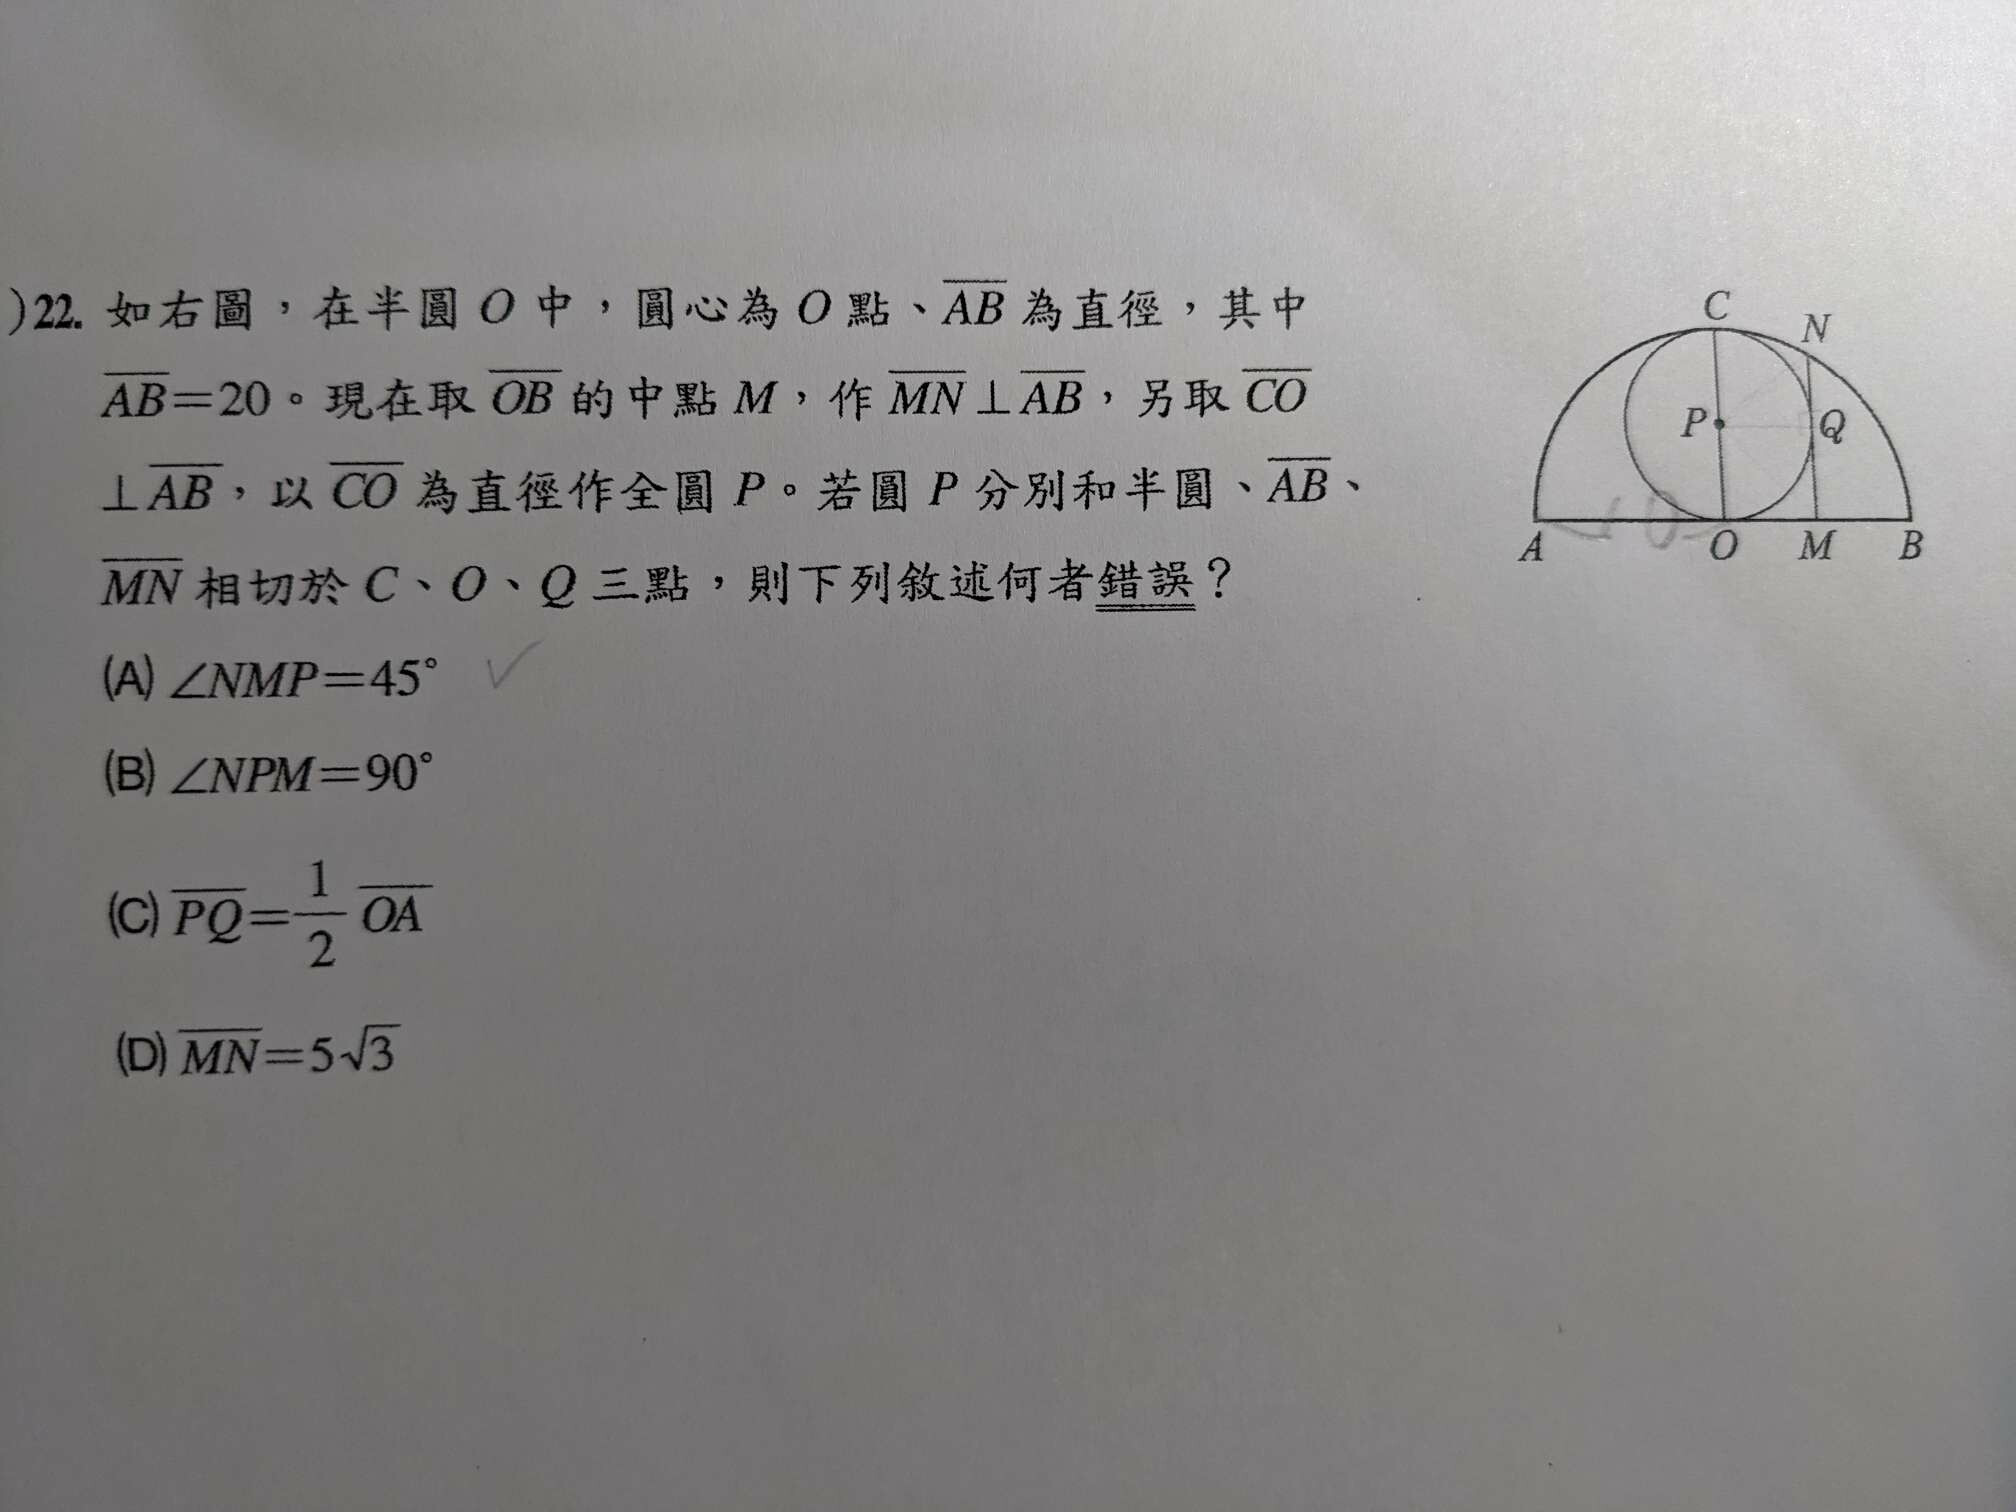 )22. 如右圖，在半圓 O 中，圓心為 O 點、AB 為直徑，其中
AB=20。現在取 OB 的中點 M，作 MN⊥AB，另取 CO
⊥AB，以 CO 為直徑作全圓 P。若圓 P 分別和半圓、AB、
MN 相切於 C、O、Q 三點，則下列敘述何者錯誤？
(A) ∠NMP=45°
(B) ∠NPM=90°
(C) PQ=1/2 OA
(D) MN=5√3
C
N
P
Q
A
O
M
B